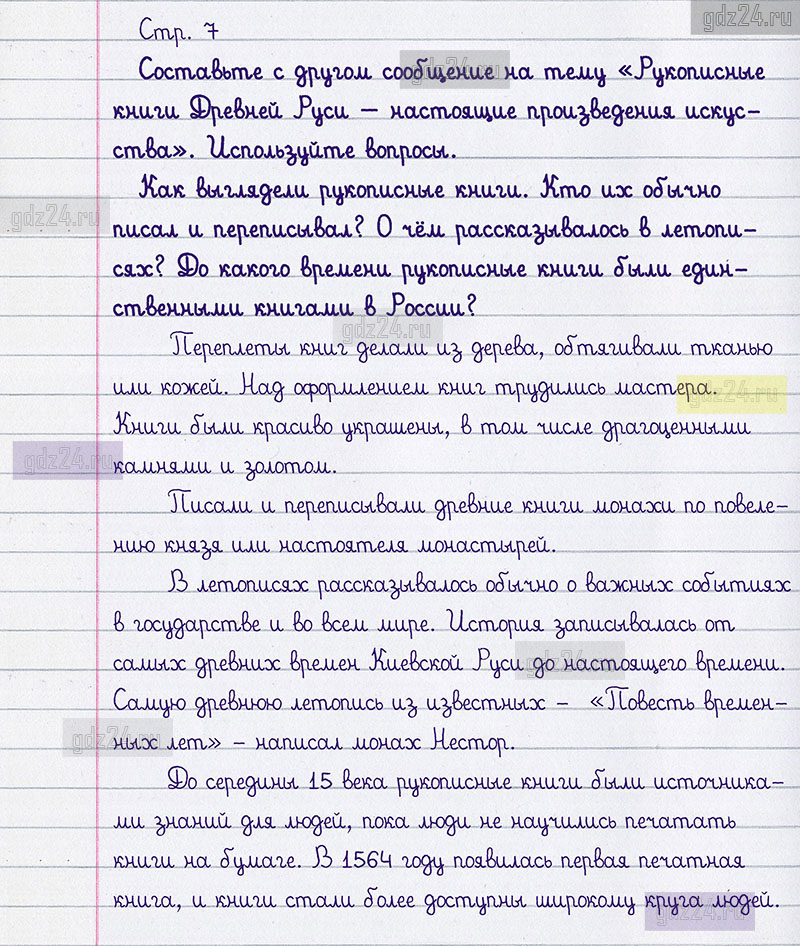 gdz24.ru
Стр. 7
Составьте с другом сообщение на тему «Рукописные
книги Древней Руси – настоящие произведения искус-
ства». Используйте вопросы.
Как выглядели рукописные книги. Кто их обычно
писал и переписывал? О чём рассказывалось в летопи-
сях? До какого времени рукописные книги были един-
ственными книгами в России?
Переплеты книг делали из дерева, обтягивали тканью
или кожей. Над оформлением книг трудились мастера.
Книги были красиво украшены, в том числе драгоценными
камнями и золотом.
Писали и переписывали древние книги монахи по повеле-
нию князя или настоятеля монастырей.
В летописях рассказывалось обычно о важных событиях
в государстве и во всем мире. История записывалась от
самых древних времен Киевской Руси до настоящего времени.
Самую древнюю летопись из известных – «Повесть времен-
ных лет» – написал монах Нестор.
До середины 15 века рукописные книги были источника-
ми знаний для людей, пока люди не научились печатать
книги на бумаге. В 1564 году появилась первая печатная
книга, и книги стали более доступны широкому круга людей.